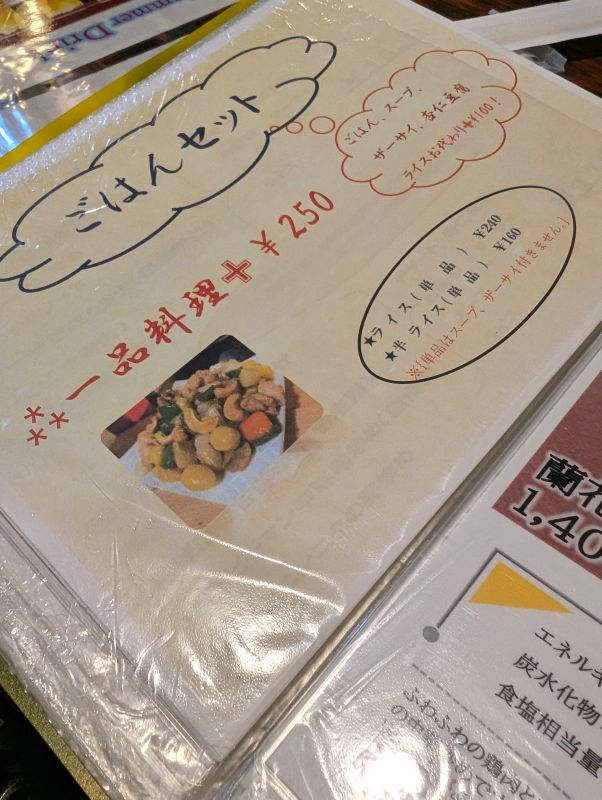 Summer Drink
ごはんセット
ごはん、スープ、
ザーサイ、杏仁豆腐
ライスお代わり+¥100!
**一品料理+¥250
★ライス(単品) ¥240
★半ライス(単品) ¥160
※{単品はスープ、ザーサイ付きません。}
蘭花
1,40
エネルギ
炭水化物
食塩相当量
ふわふわの鶏肉と